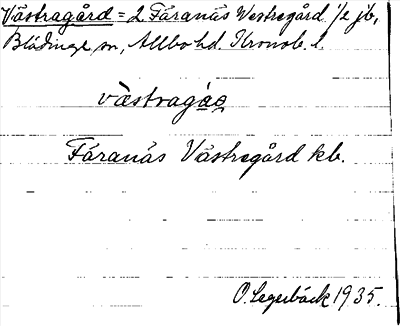 Västragård = 2 Fåranäs Vestregård 1/2 jb,
Blädinge sn, Allbo hd. Kronob. l.
västragás
Fåranäs Västregård kb.
O. Legerbäck 1935.